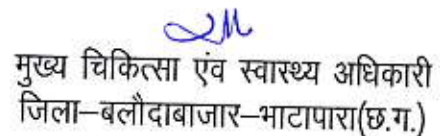 मुख्य चिकित्सा एंव स्वास्थ्य अधिकारी
जिला–बलौदाबाजार–भाटापारा(छ.ग.)